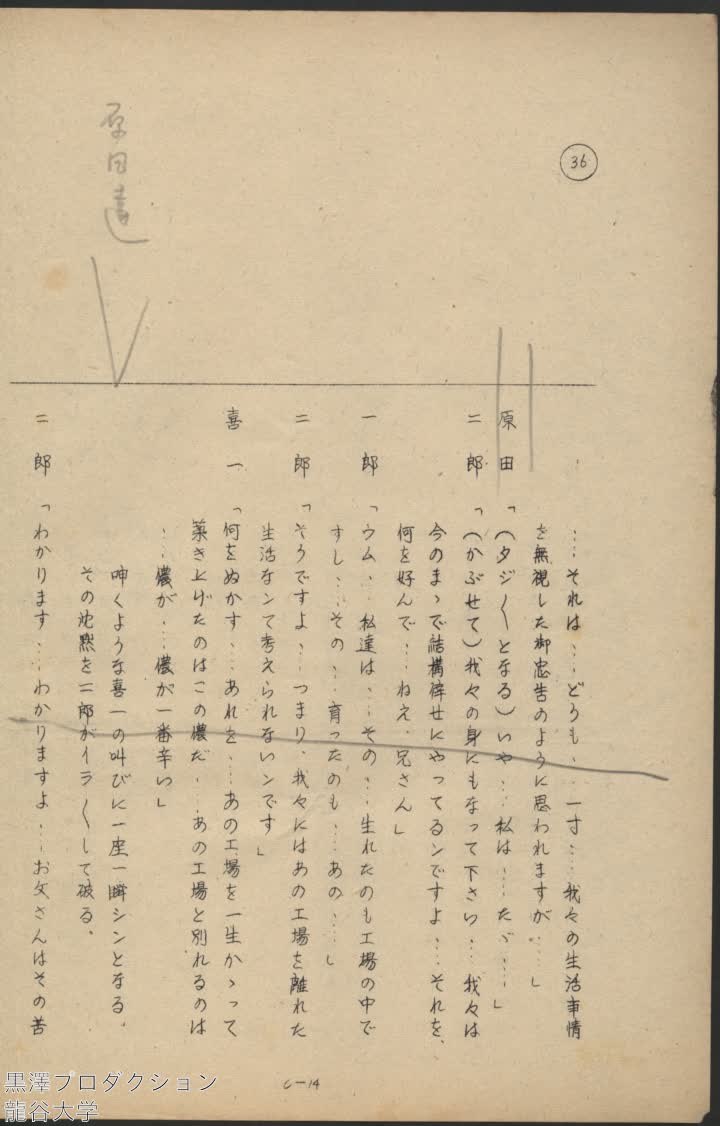 36
原田達
…それは……どうも……一寸……我々の生活事情
を無視した御忠告のように思われますが……」
原田「(タジ〱となる)いや……私は……たゞ……」
二郎「(かぶせて)我々の身にもなって下さい……我々は
今のまゝで結構倖せにやってるンですよ……それを、
何を好んで……ねえ、兄さん」
一郎「ウム……私達は……その……生れたのも工場の中で
すし……その……育ったのも……あの……」
二郎「そうですよ……つまり、我々にはあの工場を離れた
生活なンて考えられないンです」
喜一「何をぬかす……あれを……あの工場を一生かゝって
築き上げたのはこの儂だ……あの工場と別れるのは
……儂が……儂が一番辛い」
呻くような喜一の叫びに一座一瞬シンとなる。
その沈黙を二郎がイラ〱して破る。
二郎「わかります……わかりますよ……お父さんはその苦
C-14
黒澤プロダクション
龍谷大学